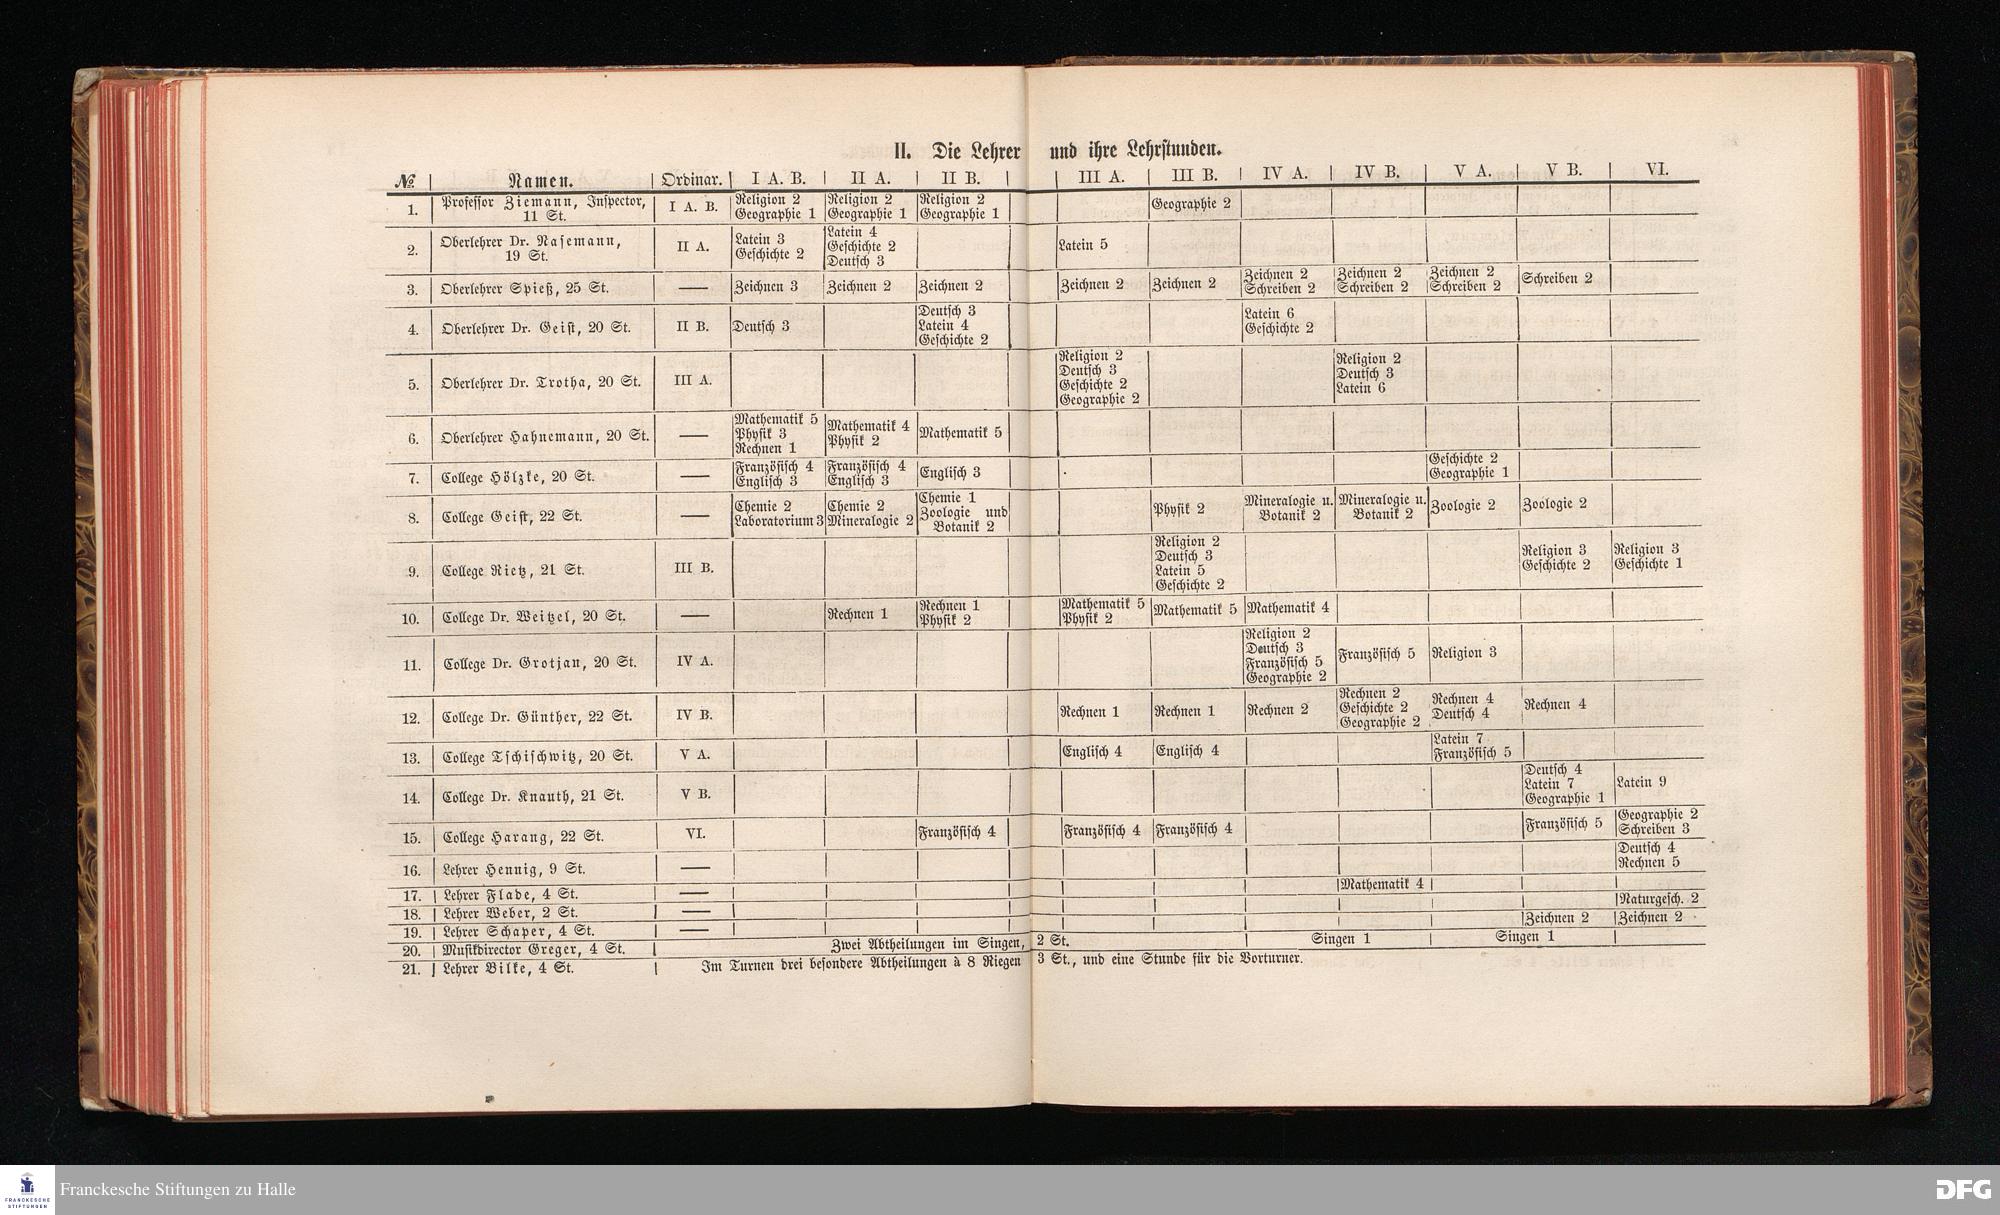 II. Die Lehrer und ihre Lehrstunden.
№ Namen. Ordinar. I A. B. II A. II B. III A. III B. IV A. IV B. V A. V B. VI.
1. Professor Ziemann, Inspector, 11 St. I A. B. Religion 2 Geographie 1 Religion 2 Geographie 1 Religion 2 Geographie 1 Geographie 2
2. Oberlehrer Dr. Nasemann, 19 St. II A. Latein 3 Geschichte 2 Latein 4 Geschichte 2 Deutsch 3 Latein 5
3. Oberlehrer Spieß, 25 St. — Zeichnen 3 Zeichnen 2 Zeichnen 2 Zeichnen 2 Zeichnen 2 Zeichnen 2 Schreiben 2 Zeichnen 2 Schreiben 2 Zeichnen 2 Schreiben 2 Schreiben 2
4. Oberlehrer Dr. Geist, 20 St. II B. Deutsch 3 Deutsch 3 Latein 4 Geschichte 2 Latein 6 Geschichte 2
5. Oberlehrer Dr. Trotha, 20 St. III A. Religion 2 Deutsch 3 Geschichte 2 Geographie 2 Religion 2 Deutsch 3 Latein 6
6. Oberlehrer Hahnemann, 20 St. — Mathematik 5 Physik 3 Rechnen 1 Mathematik 4 Physik 2 Mathematik 5
7. College Hölzke, 20 St. — Französisch 4 Englisch 3 Französisch 4 Englisch 3 Englisch 3 Geschichte 2 Geographie 1
8. College Geist, 22 St. — Chemie 2 Laboratorium 3 Chemie 2 Mineralogie 2 Chemie 1 Zoologie und Botanik 2 Physik 2 Mineralogie u. Botanik 2 Mineralogie u. Botanik 2 Zoologie 2 Zoologie 2
9. College Rietz, 21 St. III B. Religion 2 Deutsch 3 Latein 5 Geschichte 2 Religion 3 Geschichte 2 Religion 3 Geschichte 1
10. College Dr. Weitzel, 20 St. — Rechnen 1 Rechnen 1 Physik 2 Mathematik 5 Physik 2 Mathematik 5 Mathematik 4
11. College Dr. Grotjan, 20 St. IV A. Religion 2 Deutsch 3 Französisch 5 Geographie 2 Französisch 5 Religion 3
12. College Dr. Günther, 22 St. IV B. Rechnen 1 Rechnen 1 Rechnen 2 Rechnen 2 Geschichte 2 Geographie 2 Rechnen 4 Deutsch 4 Rechnen 4
13. College Tschischwitz, 20 St. V A. Englisch 4 Englisch 4 Latein 7 Französisch 5
14. College Dr. Knauth, 21 St. V B. Deutsch 4 Latein 7 Geographie 1 Latein 9
15. College Harang, 22 St. VI. Französisch 4 Französisch 4 Französisch 4 Französisch 5 Geographie 2 Schreiben 3
16. Lehrer Hennig, 9 St. — Deutsch 4 Rechnen 5
17. Lehrer Flade, 4 St. — Mathematik 4
18. Lehrer Weber, 2 St. — Naturgesch. 2
19. Lehrer Schaper, 4 St. — Zeichnen 2 Zeichnen 2
20. Musikdirector Greger, 4 St. Zwei Abtheilungen im Singen, 2 St. Singen 1 Singen 1
21. Lehrer Bilke, 4 St. Im Turnen drei besondere Abtheilungen à 8 Riegen 3 St., und eine Stunde für die Vorturner.
FRANCKESCHE
STIFTUNGEN
Franckesche Stiftungen zu Halle
DFG